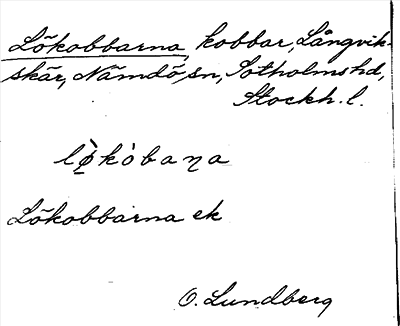 Lökobbarna, kobbar, Långvik-
skär, Nämdö sn, Sotholms hd,
Stockh. l.
lø̀kòbaɳa
Lökobbarna ek
O. Lundberg